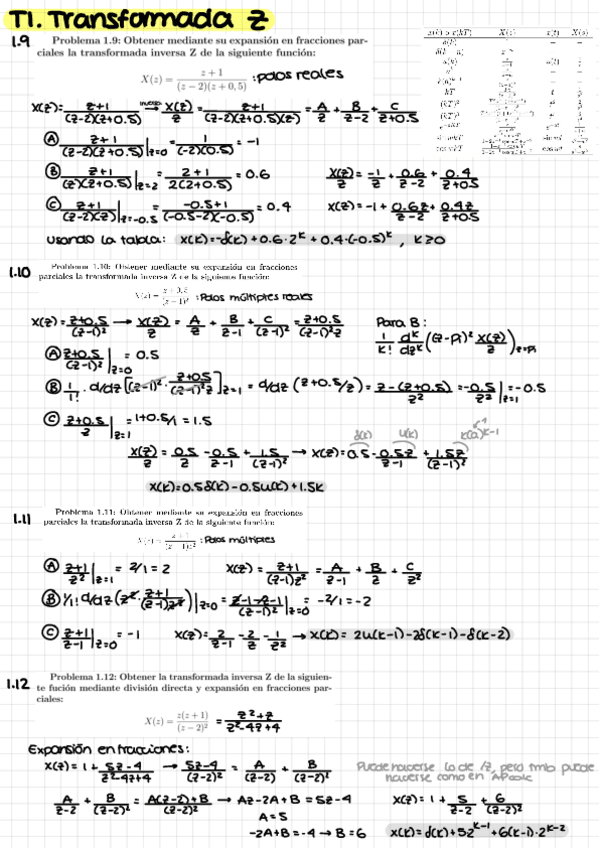 T1. Transformada Z
1.9 Problema 1.9: Obtener mediante su expansión en fracciones par-
ciales la transformada inversa Z de la siguiente función:
X(z) = z+1 / (z−2)(z+0,5) : polos reales
X(z) = z+1 / (z-2)(z+0.5) → X(z)/z = z+1 / (z-2)(z+0.5)(z) = A/z + B/z-2 + C/z+0.5
(A) z+1 / (z-2)(z+0.5) |z=0 = 1/(-2)(0.5) = -1
(B) z+1 / (z)(z+0.5) |z=2 = 2+1 / 2(2+0.5) = 0.6 X(z)/z = -1/z + 0.6/z-2 + 0.4/z+0.5
(C) z+1 / (z-2)(z) |z=-0.5 = -0.5+1 / (-0.5-2)(-0.5) = 0.4 X(z) = -1 + 0.6z/z-2 + 0.4z/z+0.5
usando la tabla: x(k) = -δ(k) + 0.6·2^k + 0.4·(-0.5)^k , k≥0
1.10 Problema 1.10: Obtener mediante su expansión en fracciones
parciales la transformada inversa Z de la siguiente función:
X(z) = z+0,5 / (z−1)² : Polos múltiples reales
X(z) = z+0.5 / (z-1)² → X(z)/z = A/z + B/z-1 + C/(z-1)² = z+0.5 / (z-1)²z Para B:
1/k! d^k/dz^k ((z-pi)² X(z)/z) z=pi
(A) z+0.5 / (z-1)² |z=0 = 0.5
(B) 1/1! · d/dz [(z-1)² · z+0.5 / (z-1)²z] z=1 = d/dz (z+0.5/z) = z-(z+0.5) / z² = -0.5/z² |z=1 = -0.5
(C) z+0.5 / z |z=1 = 1+0.5/1 = 1.5
δ(k) u(k) k(a)^k-1
X(z)/z = 0.5/z - 0.5/z-1 + 1.5/(z-1)² → X(z) = 0.5 - 0.5z/z-1 + 1.5z/(z-1)²
x(k) = 0.5δ(k) - 0.5u(k) + 1.5k
1.11 Problema 1.11: Obtener mediante su expansión en fracciones
parciales la transformada inversa Z de la siguiente función:
X(z) = z+1 / (z−1)z² : Polos múltiples
(A) z+1 / z² |z=1 = 2/1 = 2 X(z) = z+1 / (z-1)z² = A/z-1 + B/z + C/z²
(B) 1/1! d/dz (z² · z+1 / (z-1)z²) |z=0 = z-1-z-1 / (z-1)² |z=0 = -2/1 = -2
(C) z+1 / z-1 |z=0 = -1 X(z) = 2/z-1 - 2/z - 1/z² → x(k) = 2u(k-1) - 2δ(k-1) - δ(k-2)
1.12 Problema 1.12: Obtener la transformada inversa Z de la siguien-
te fución mediante división directa y expansión en fracciones par-
ciales:
X(z) = z(z+1) / (z−2)² = z²+z / z²-4z+4
Expansión en fracciones:
X(z) = 1 + 5z-4 / z²-4z+4 → 5z-4 / (z-2)² = A/(z-2) + B/(z-2)² Puede hacerse lo de /z, pero tmb puede
hacerse como en
A/z-2 + B/(z-2)² = A(z-2)+B / (z-2)² → Az-2A+B = 5z-4 X(z) = 1 + 5/z-2 + 6/(z-2)²
A=5
-2A+B=-4 → B=6 x(k) = δ(k) + 5·2^k-1 + 6(k-1)·2^k-2